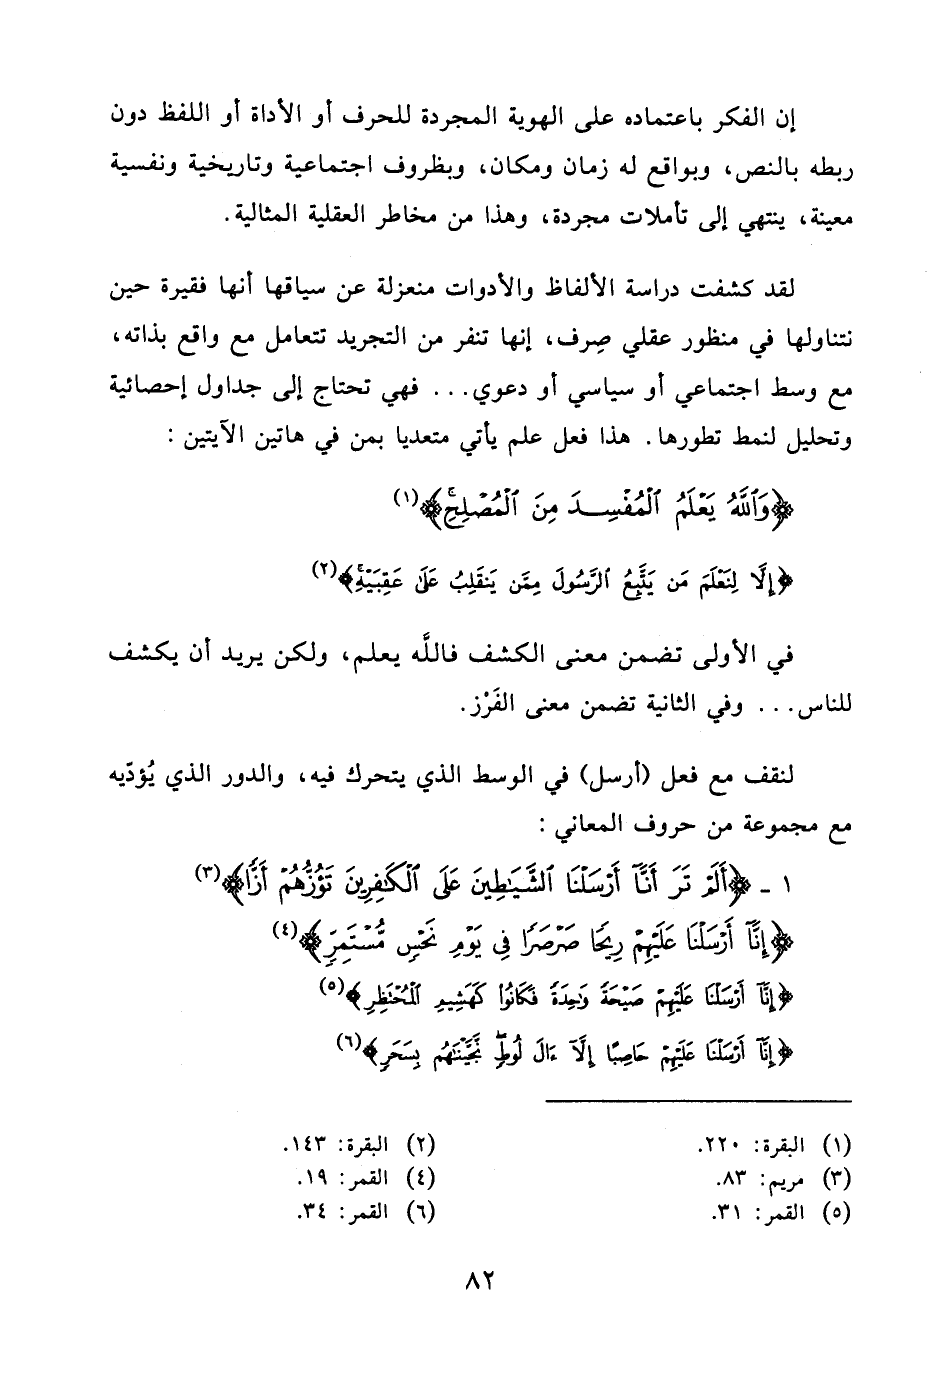 إن الفكر باعتماده على الهوية المجردة للحرف أو الأداة أو اللفظ دون
ربطه بالنص، وبواقع له زمان ومكان، وبظروف اجتماعية وتاريخية ونفسية
معينة، ينتهي إلى تأملات مجردة، وهذا من مخاطر العقلية المثالية.
لقد كشفت دراسة الألفاظ والأدوات منعزلة عن سياقها أنها فقيرة حين
نتناولها في منظور عقلي صِرف، إنها تنفر من التجريد تتعامل مع واقع بذاته،
مع وسط اجتماعي أو سياسي أو دعوي... فهي تحتاج إلى جداول إحصائية
وتحليل لنمط تطورها. هذا فعل علم يأتي متعديا بمن في هاتين الآيتين :
﴿وَٱللَّهُ يَعْلَمُ ٱلْمُفْسِدَ مِنَ ٱلْمُصْلِحِۚ﴾(١)
﴿إِلَّا لِنَعْلَمَ مَن يَتَّبِعُ ٱلرَّسُولَ مِمَّن يَنقَلِبُ عَلَىٰ عَقِبَيْهِۚ﴾(٢)
في الأولى تضمن معنى الكشف فاللَّه يعلم، ولكن يريد أن يكشف
للناس... وفي الثانية تضمن معنى الفَرْز.
لنقف مع فعل (أرسل) في الوسط الذي يتحرك فيه، والدور الذي يُؤدّيه
مع مجموعة من حروف المعاني :
١ - ﴿أَلَمْ تَرَ أَنَّآ أَرْسَلْنَا ٱلشَّيَٰطِينَ عَلَى ٱلْكَٰفِرِينَ تَؤُزُّهُمْ أَزًّا﴾(٣)
﴿إِنَّآ أَرْسَلْنَا عَلَيْهِمْ رِيحًا صَرْصَرًا فِى يَوْمِ نَحْسٍ مُّسْتَمِرٍّ﴾(٤)
﴿إِنَّآ أَرْسَلْنَا عَلَيْهِمْ صَيْحَةً وَٰحِدَةً فَكَانُوا۟ كَهَشِيمِ ٱلْمُحْتَظِرِ﴾(٥)
﴿إِنَّآ أَرْسَلْنَا عَلَيْهِمْ حَاصِبًا إِلَّآ ءَالَ لُوطٍۖ نَّجَّيْنَٰهُم بِسَحَرٍ﴾(٦)
(١) البقرة: ٢٢٠. (٢) البقرة: ١٤٣.
(٣) مريم: ٨٣. (٤) القمر: ١٩.
(٥) القمر: ٣١. (٦) القمر: ٣٤.
٨٢